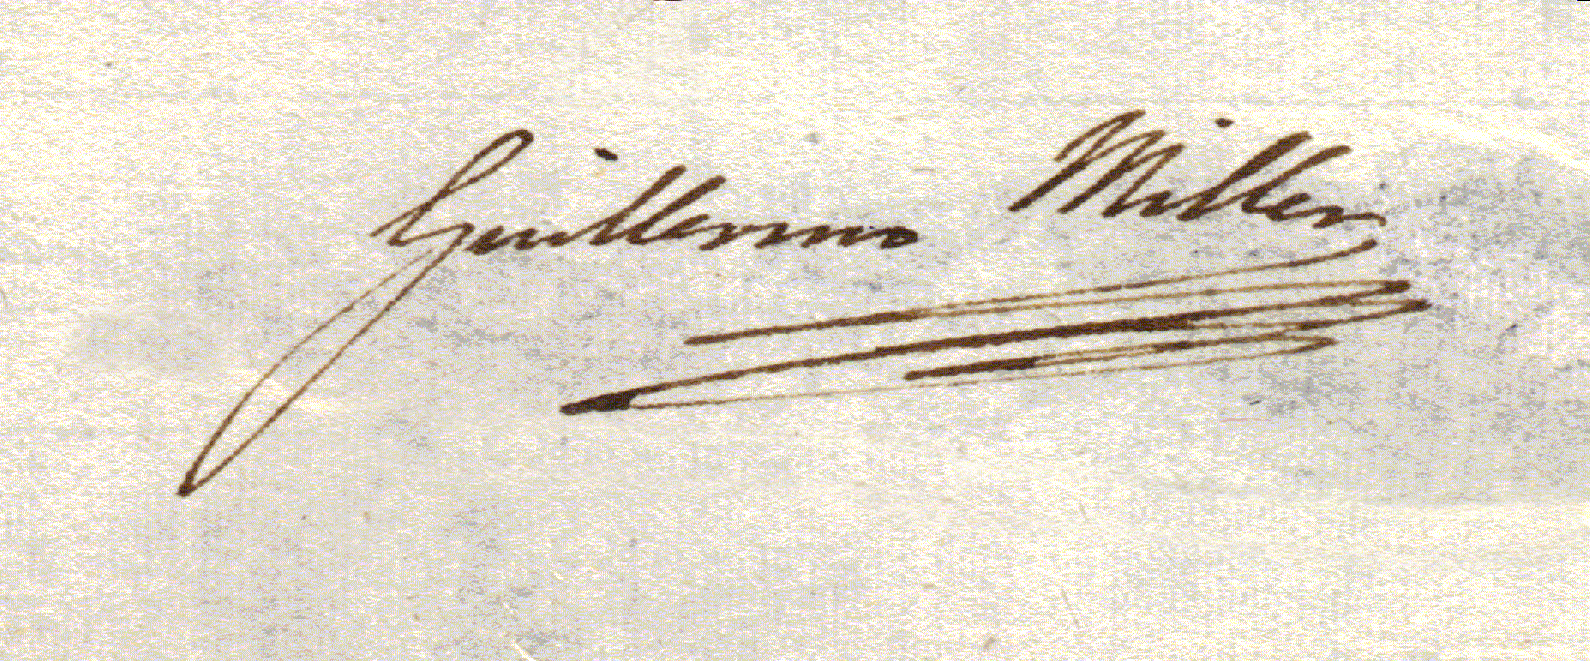 Guillermo Miller